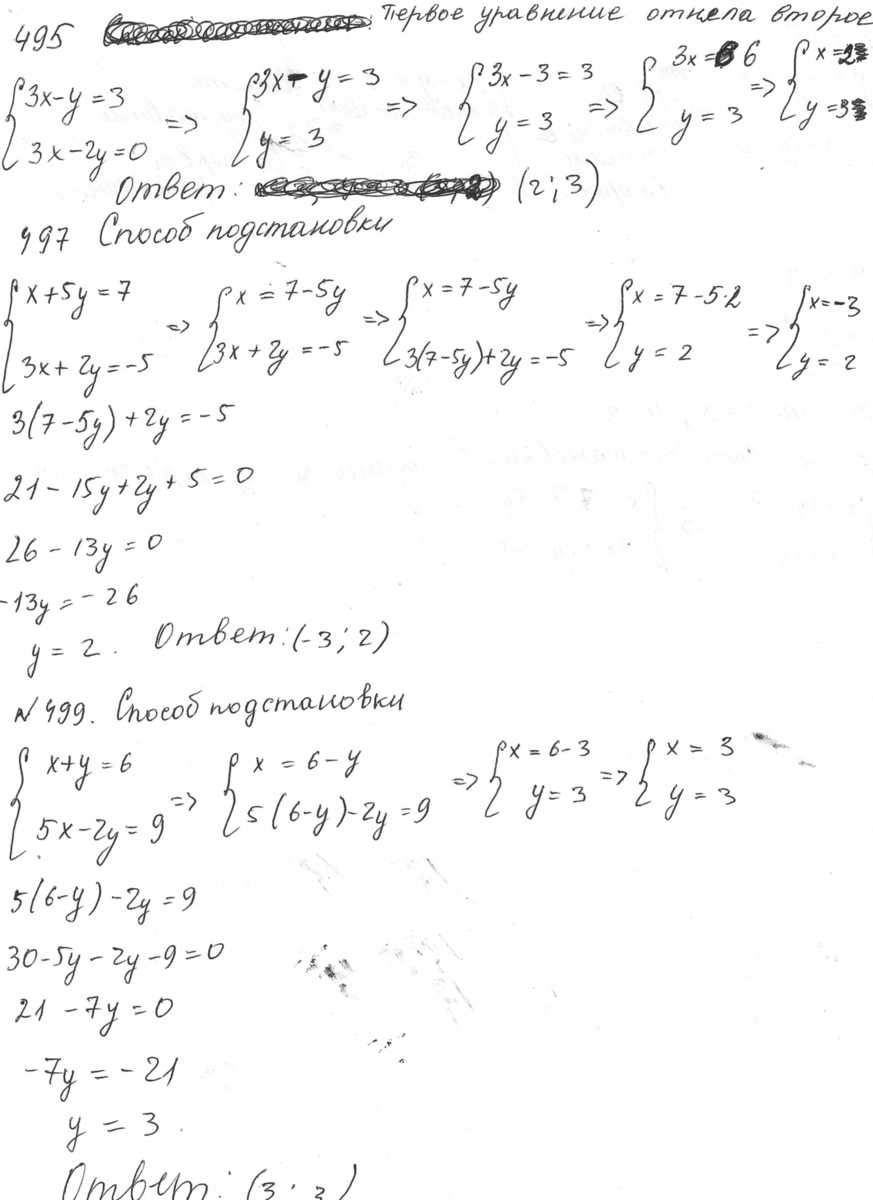 495 Первое уравнение отняла второе
{3x-y=3 3x-2y=0 => {3x-y=3 y=3 => {3x-3=3 y=3 => {3x=6 y=3 => {x=2 y=3
Ответ: (2;3)
497 Способ подстановки
{x+5y=7 3x+2y=-5 => {x=7-5y 3x+2y=-5 => {x=7-5y 3(7-5y)+2y=-5 => {x=7-5·2 y=2 => {x=-3 y=2
3(7-5y)+2y=-5
21-15y+2y+5=0
26-13y=0
-13y=-26
y=2. Ответ: (-3;2)
№499. Способ подстановки
{x+y=6 5x-2y=9 => {x=6-y 5(6-y)-2y=9 => {x=6-3 y=3 => {x=3 y=3
5(6-y)-2y=9
30-5y-2y-9=0
21-7y=0
-7y=-21
y=3.
Ответ: (3;3)